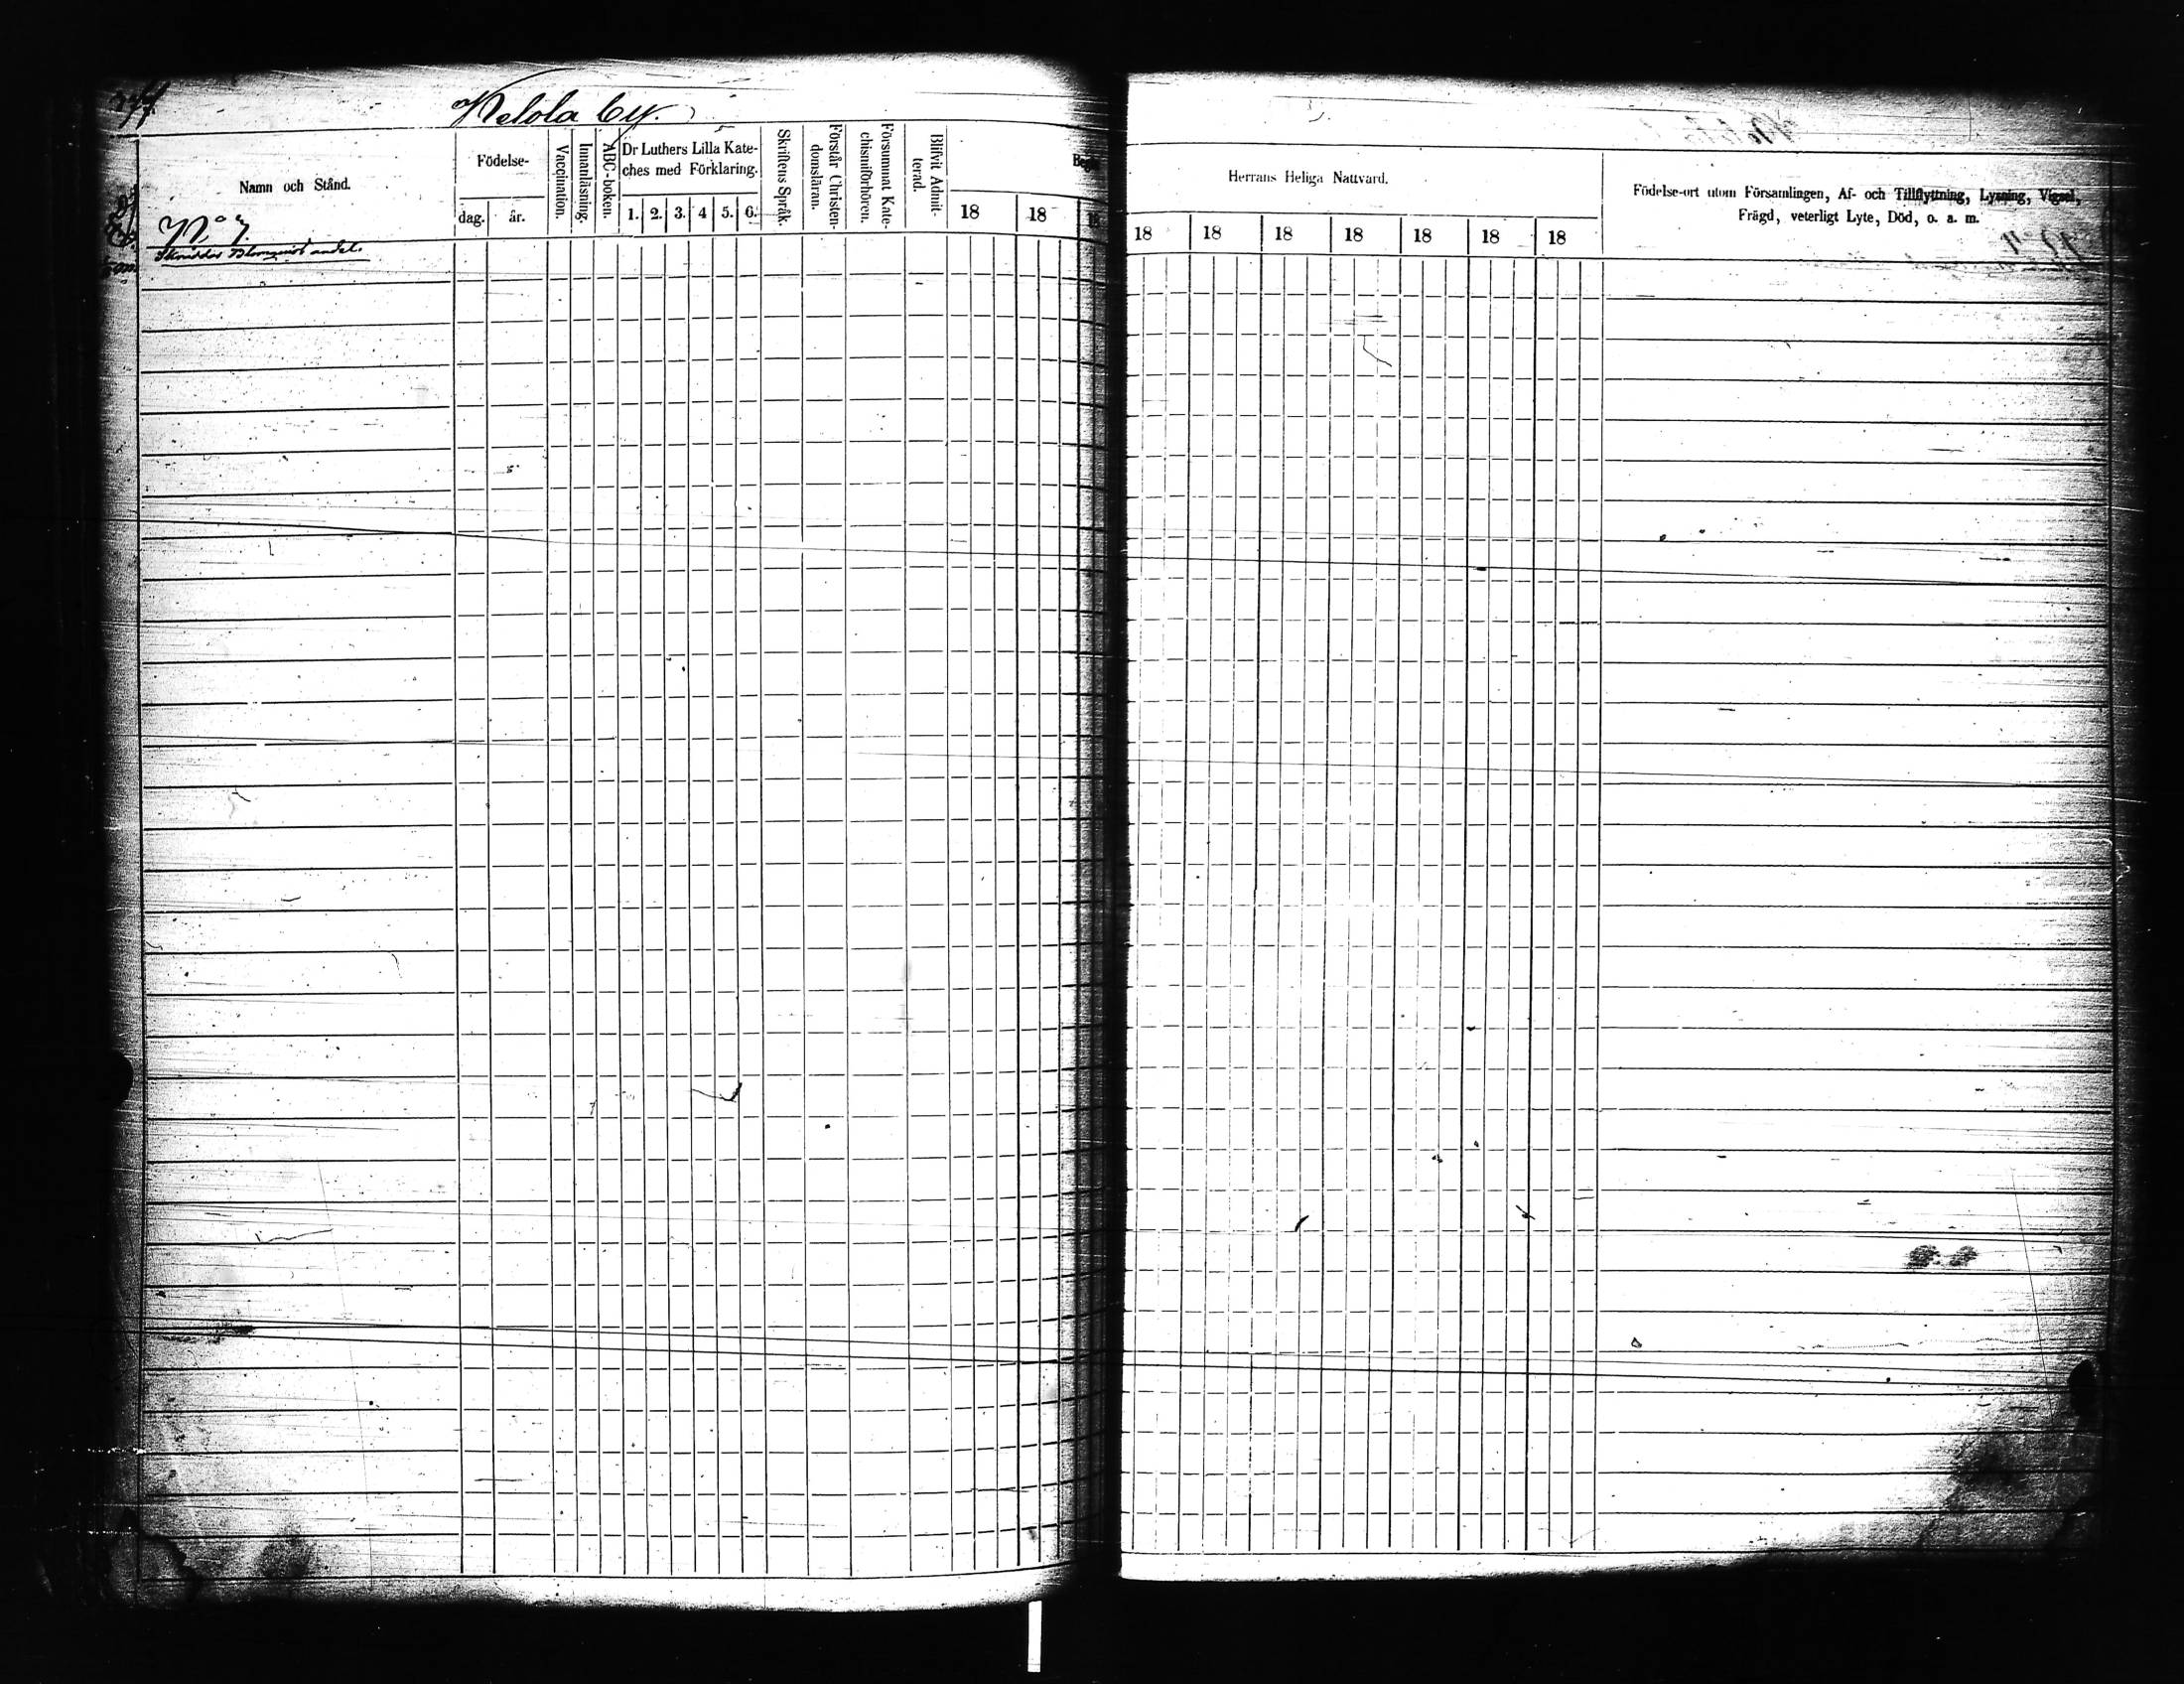 Kelola by.
Namn och Stånd.
Födelse-
dag.
år.
Vaccination.
Innanläsning.
ABC-boken.
Dr Luthers Lilla Kate-
ches med Förklaring.
1. 2. 3. 4 5. 6.
Skriftens Språk.
Förstår Christen-
domsläran.
Försummat Kate-
chismiförhören.
Blifvit Admit-
terad.
18 18
Herrans Heliga Nattvard.
18 18 18 18 18 18 18
Födelse-ort utom Församlingen, Af- och Tillflyttning, Lysning, Vigsel,
Frägd, veterligt Lyte, Död, o. a. m.
No 7.
Blomqvist andel.